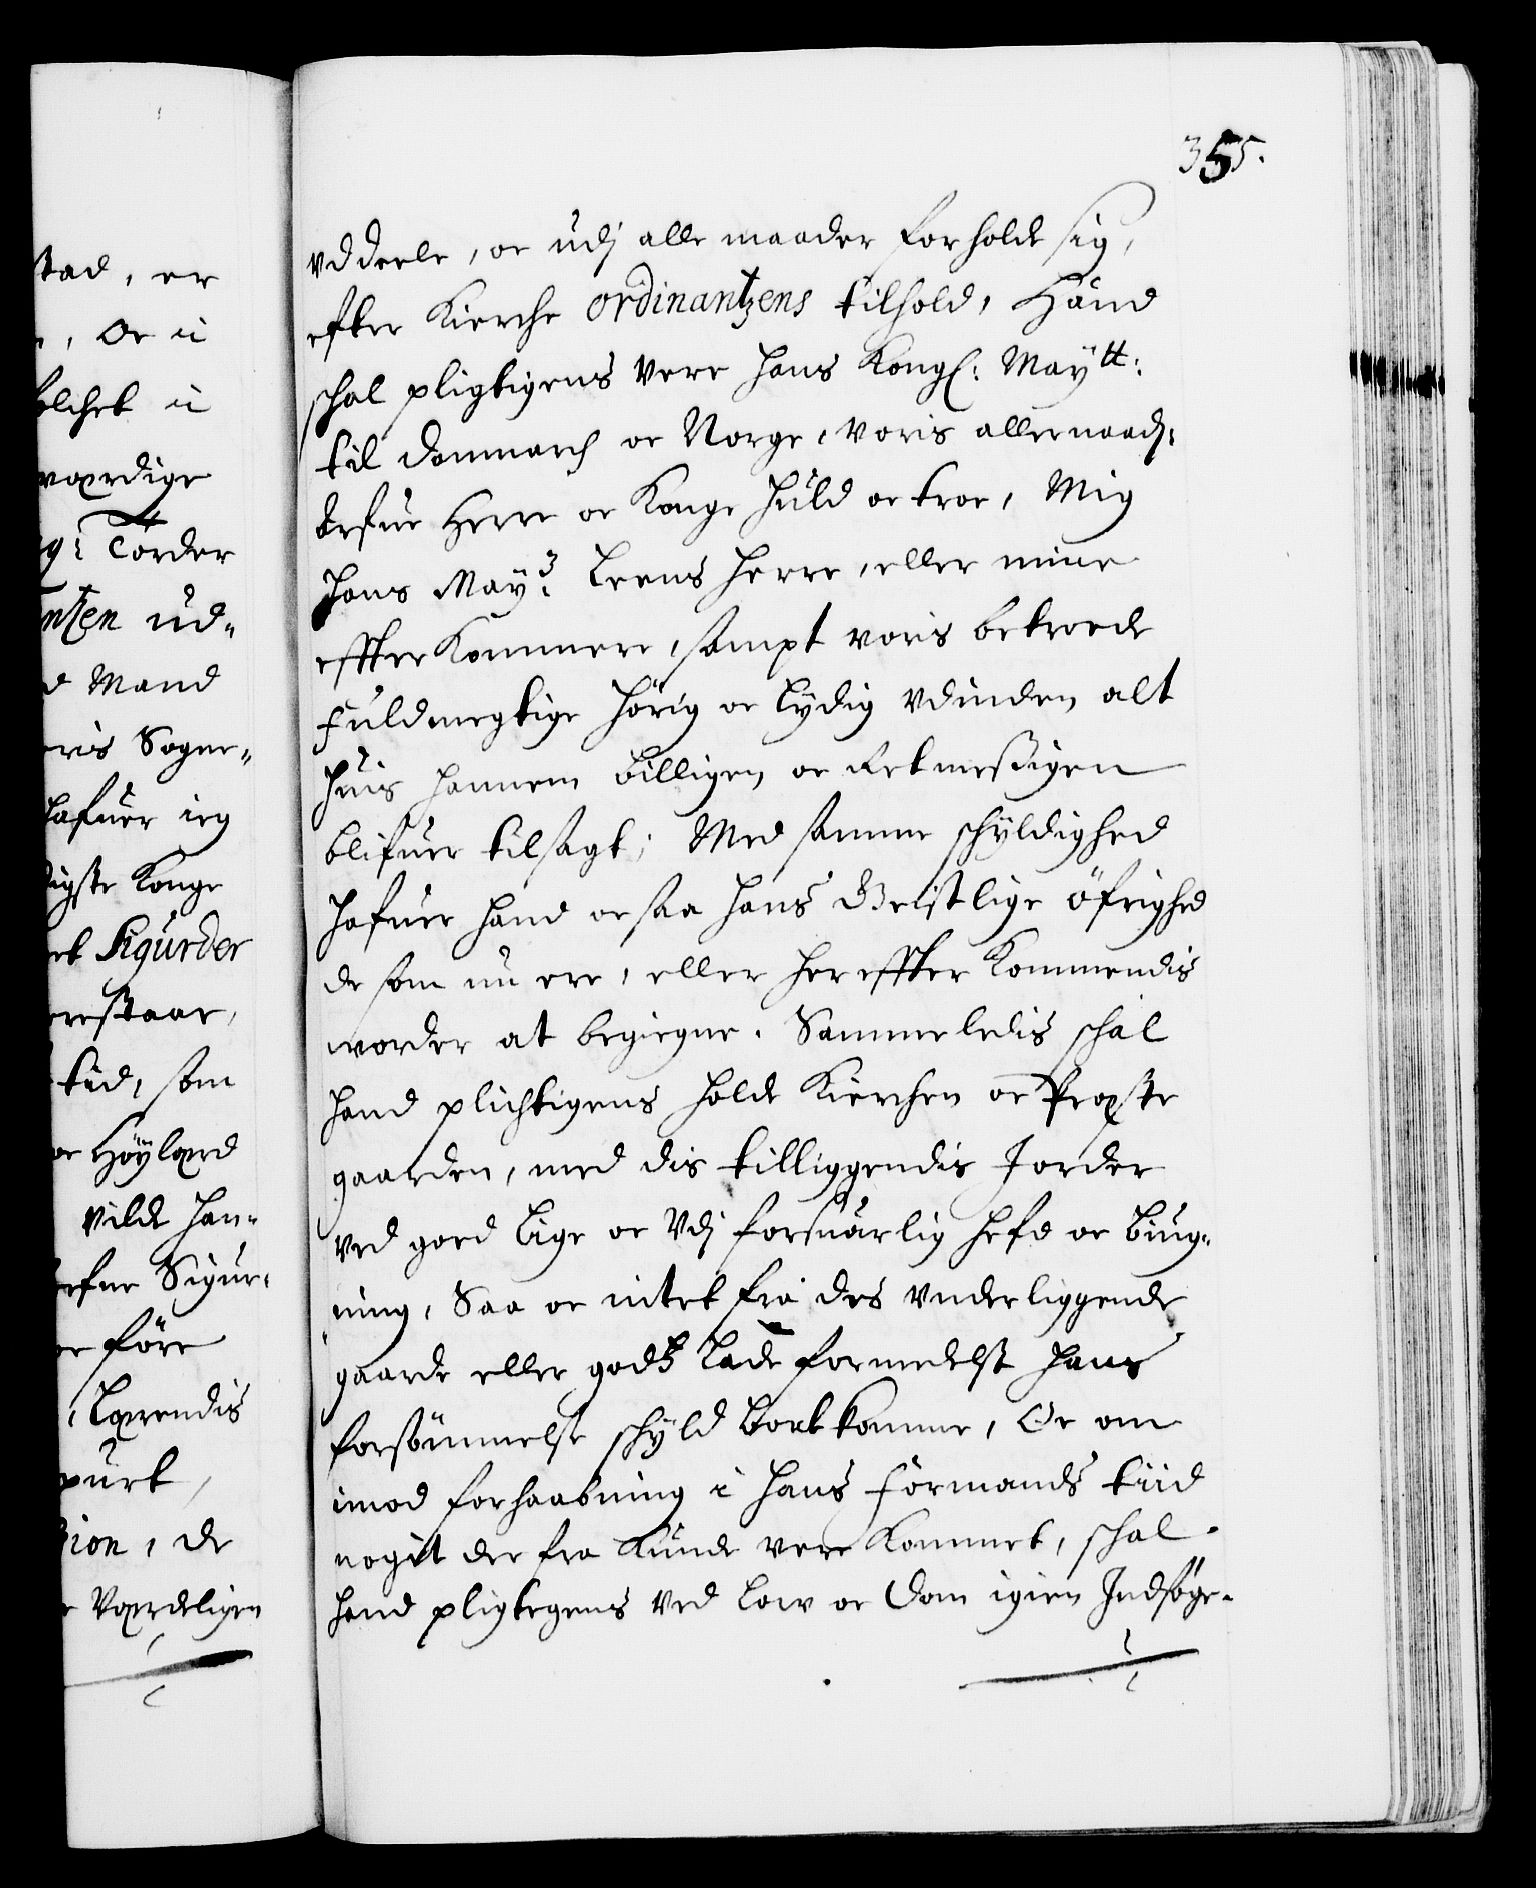 355.
vddeele, oc udj alle maader forholde sig,
efter Kierche ordinantzens tilhold, Hand
schal pligtigens vere hans Kongl: Maytt:
til Danmarch oc Norge, voris allernaadi:
Arfue Herre oc Konge huld oc troe, Mig
hans May: Leens herre, eller mine
effterkommere, sampt voris betroede
Fuldmegtige hörig oc Lydig vdinden alt
huis hannem billigen oc Retmessigen
blifuer tilsagt; Med samme schyldighed
hafuer hand ocsaa hans Geistlige öfrighed
de som nu ere, eller hereffter Kommendis
worder at begiegne. Sammeledis schal
hand plichtigens holde Kierchen oc Præste
gaarden, med dis tilliggendis Jorder
ved goed Lige oc Vdj forsuarlig hefd oc biug-
ning, Saa oc intet fra des vnderliggende
gaarde eller godtz Lade formedelst hans
forsömmelse schyld bortkomme, Oc om
imod forhaabning i hans Formands tiid
nogit der fra kunde vere kommet, schal
hand pligtegens ved Low oc Dom igien Indsøge-
stad, er
, Oc i
olchet i
værdige
Torder
ntzen ud-
d Mand
oris Sogne-
hafuer ieg
digste Konge
et Sigurder
restaar,
tid, som
oc Höylærd
vilde han-
efne Sigur-
er före
, Lærendis
purt,
sion, de
Værdeligen